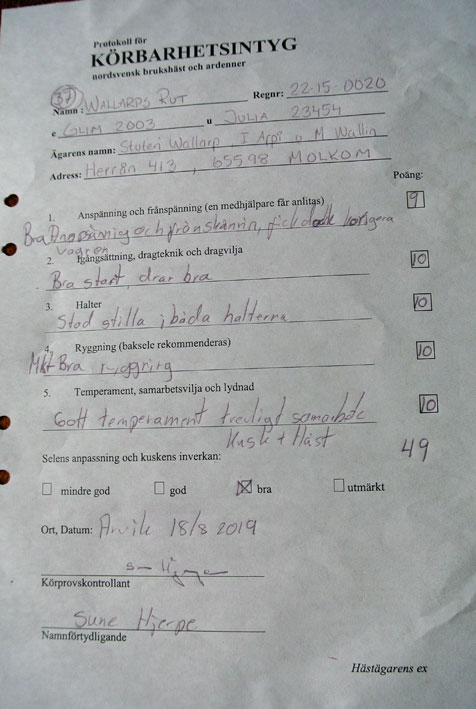 Protokoll för
KÖRBARHETSINTYG
nordsvensk brukshäst och ardenner
37
Namn: WALLARPS RUT Regnr: 22-15-0020
e GLIM 2003 u JULIA 23454
Ägarens namn: Stuteri Wallarp, I Arpi o M Wallin
Adress: Herrön 413, 65598 MOLKOM
Poäng:
1. Anspänning och frånspänning (en medhjälpare får anlitas) 9
Bra Anspänning och frånspännin, fick dock korrigera
vagnen
2. Igångsättning, dragteknik och dragvilja 10
Bra start, drar bra
3. Halter 10
Stod stilla i båda halterna
4. Ryggning (baksele rekommenderas) 10
Mkt Bra ryggning
5. Temperament, samarbetsvilja och lydnad 10
Gott temperament trevligt samarbete
Kusk + Häst
49
Selens anpassning och kuskens inverkan:
mindre god god bra utmärkt
Ort, Datum: Arvika 18/8 2019
Körprovskontrollant
Sune Hjerpe
Namnförtydligande
Hästägarens ex